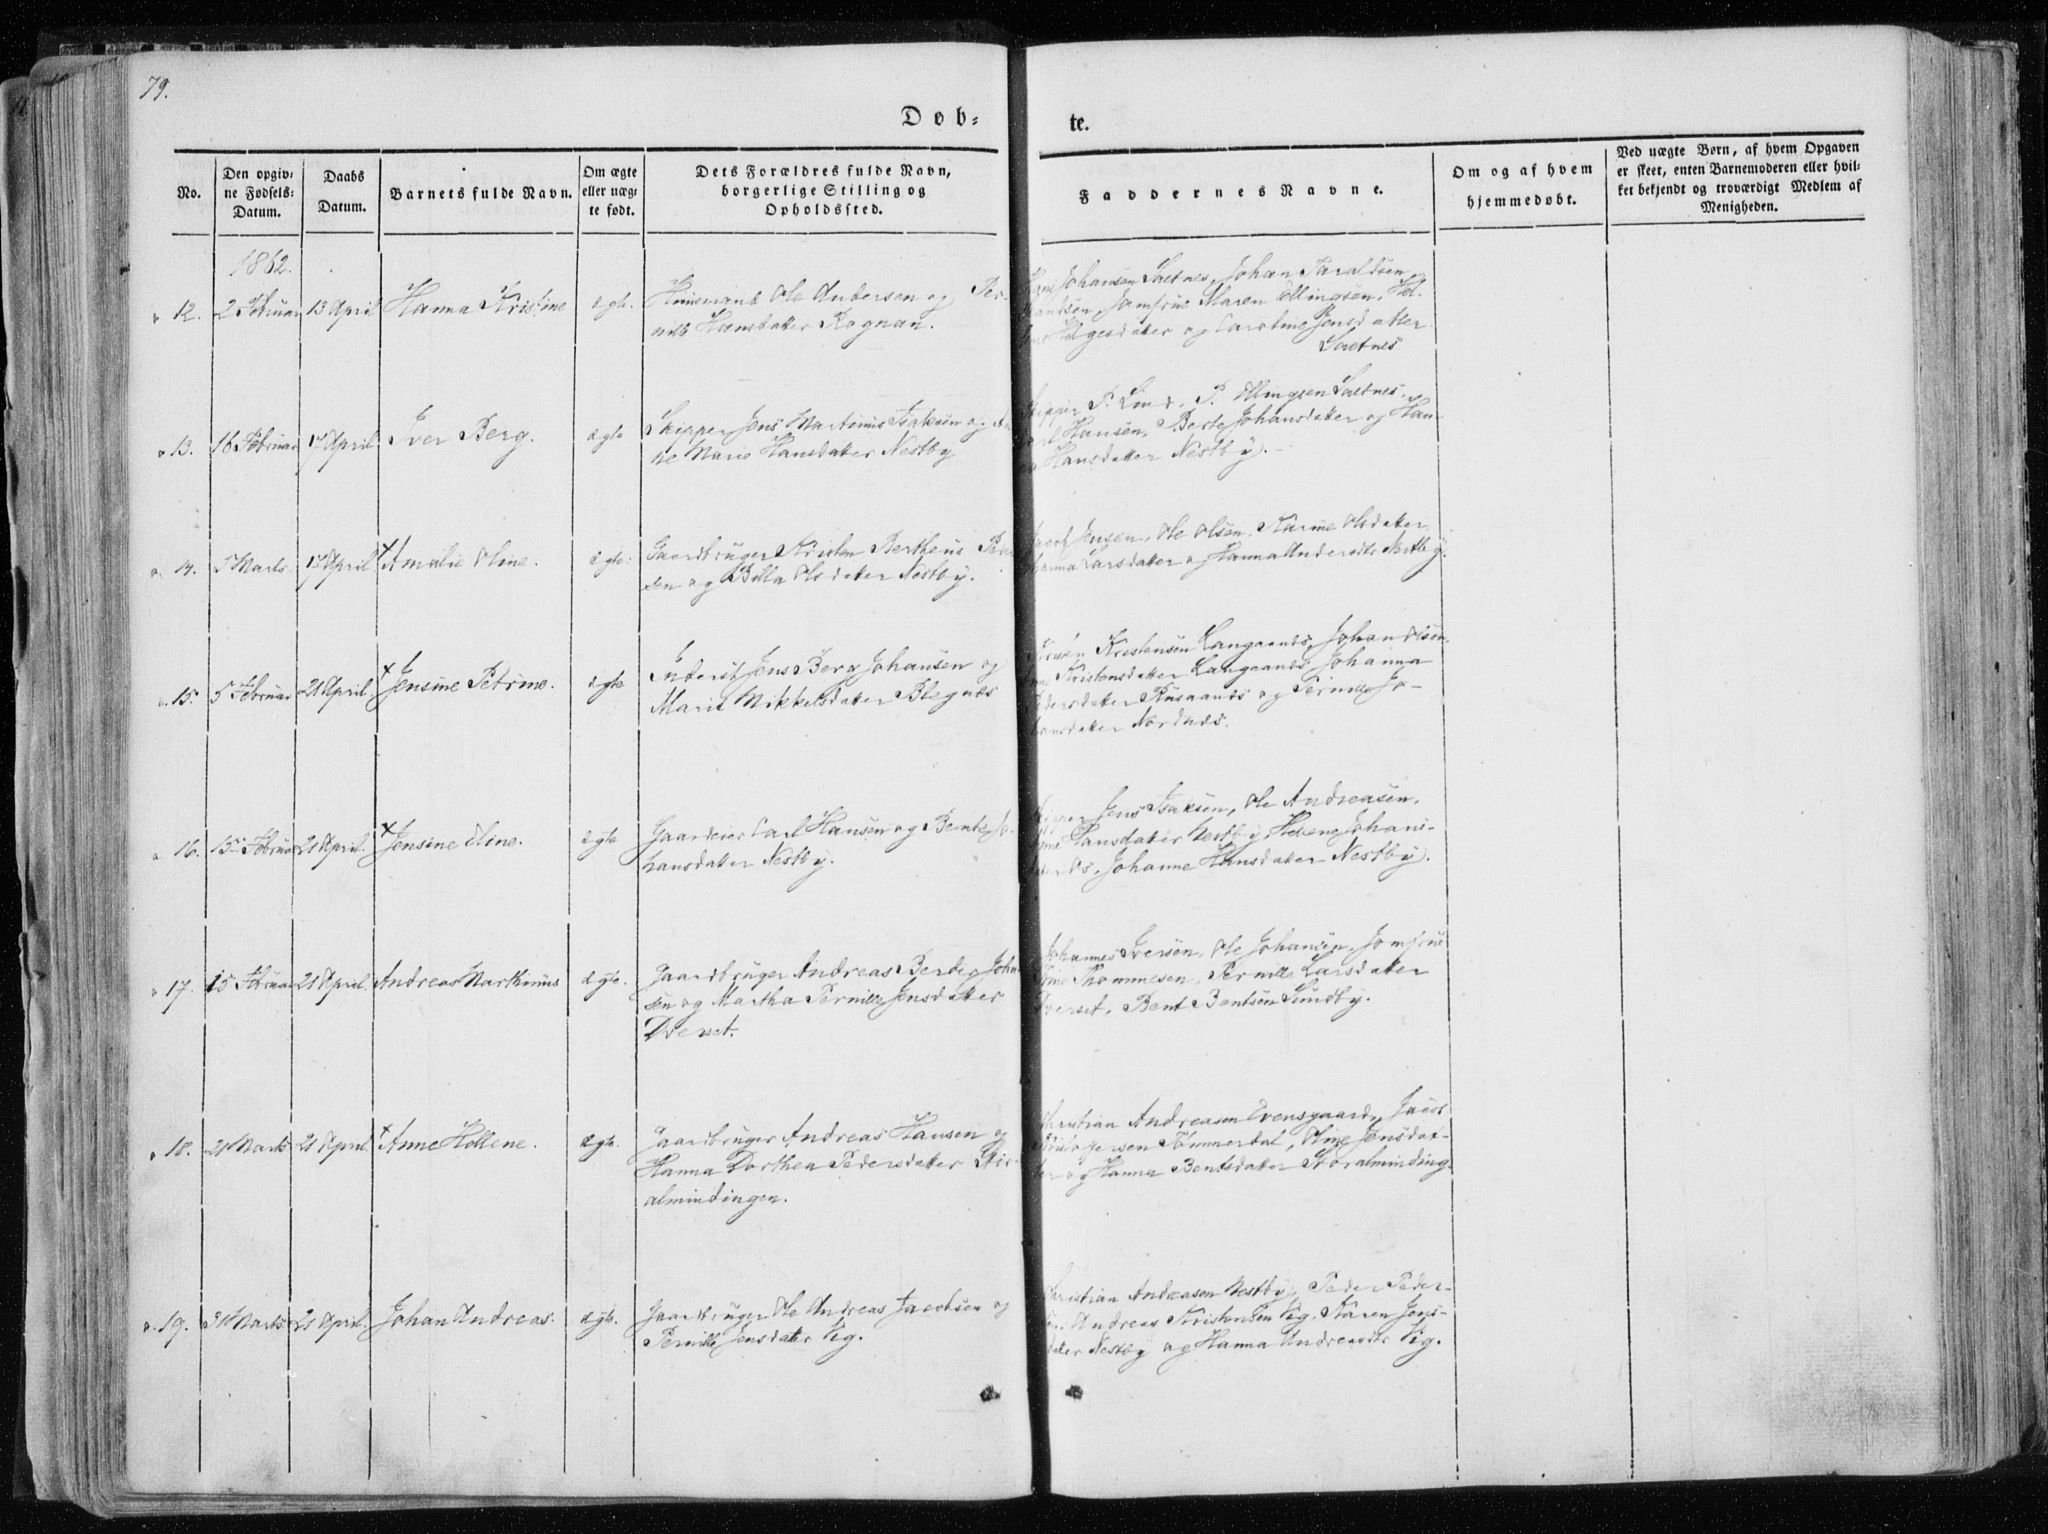 79.
Døb-
te.
No.
Den opgiv-
ne Fødsels-
Datum.
Daabs
Datum.
Barnets fulde Navn.
Om ægte
eller uæg-
te født.
Dets Forældres fulde Navn,
borgerlige Stilling og
Opholdssted.
Faddernes Navne.
Om og af hvem
hjemmedøbt.
Ved uægte Børn, af hvem Opgaven
er skeet, enten Barnemoderen eller hvil-
ket bekjendt og troværdigt Medlem af
Menigheden.
1862.
12. 2 Februar 13 April Hanna Kristine ægte. Huusmand Ole Andersen og Per-
nille Hansdatter Rognan.
Johansen Saltnes, Johan Taraldsen
Jomfrue Maren Ellingsen, Hel-
Helgesdatter og Caroline Jensdatter
Saltnes
13. 16 Februar 17 April Iver Berg. ægte Skipper Jens Martinus Isaksen og An-
ne Marie Hansdatter Nestby
Skipper P. Lund, P. Ellingsen Saltnes,
Carl Hansen, Berte Johansdatter og Han-
na Hansdatter Nestby.
14. 5 Marts. 17 April Amalie Oline. ægte. Gaardbruger Kristen Bertheus Peder-
sen og Billa Olsdatter Nestby.
Jacob Jensen, Ole Olsen, Karine Olsdatter,
Hanna Larsdatter og Hanna Andersdtr Nestby.
15. 5 Februar 21 April. Jensine Petrine. ægte Inderst Jens Berg Johansen og
Marie Mikkelsdatter Blegnæs
Kristensen Langaands, Johan Olsen,
Kristensdatter Langaands Johanna
Pedersdatter Rusaands og Pernille Jo-
hansdatter Nordnæs.
16. 15 Februar 21 April. Jensine Oline. ægte Gaardeier Carl Hansen og Bente Jo-
hansdatter Nestby.
Skipper Jens Isaksen, Ole Andreasen,
Hansdatter Nestby, Helene Johans-
datter Os, Johanne Hansdatter Nestby.
17. 15 Februar 21 April. Andreas Marthinus ægte. Gaardbruger Andreas Berbeg John-
sen og Martha Pernille Jensdatter
Dverset.
Johannes Iversen, Ole Johansen, Jomfrue
Thommesen, Pernille Larsdatter
Dverset, Bent Bentsen Sundby.
18. 21 Marts 21 April Anne Hellene. ægte. Gaardbruger Andreas Hansen og
Hanna Dorthea Pedersdatter Stor-
almindingen.
Christian Andreasen Evensgaard, Jacob
Kristophersen Tømmerdal, Oline Jensdat-
ter og Hanna Bentsdatter Storalminding.
19. 31 Marts 21 April. Johan Andreas. ægte. Gaardbruger Ole Andreas Jacobsen og
Pernille Jensdatter Vig.
Christian Andreasen Nestby, Peder Peder-
sen, Andreas Kristensen Vig, Karen Jens-
datter Nestby og Hanna Andreasdtr Vig.